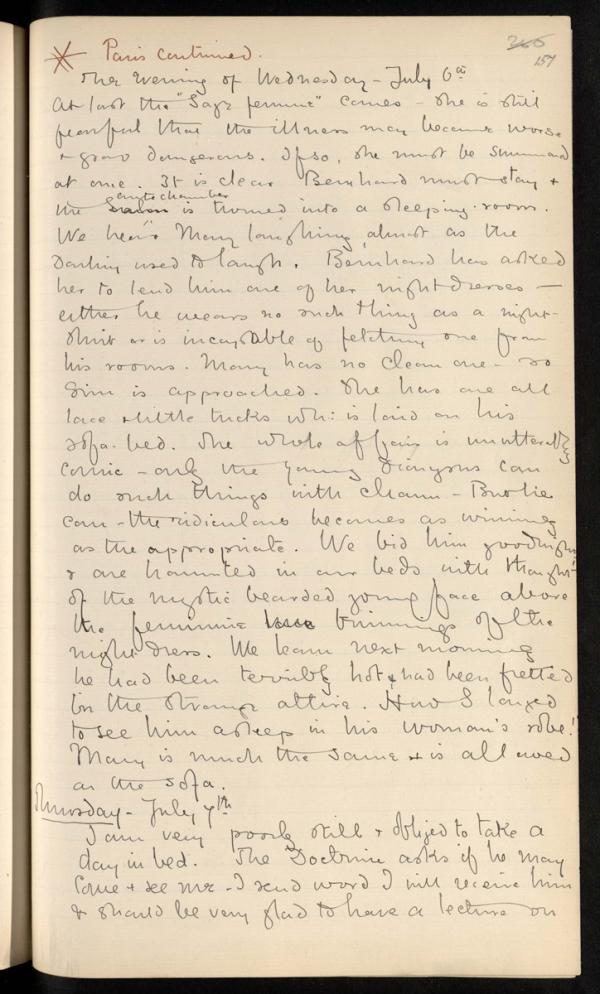 265
157
Paris continued.
The Evening of Wednesday - July 6th
At last the "Sage femme" comes - she is still
fearful that the illness may become worse
& grow dangerous. If so, she must be summoned
at once. It is clear Bernhard must stay &
antechamber
the Salon is turned into a sleeping-room.
We hear Mary laughing almost as the
Darling used to laugh. Bernhard has asked
her to lend him one of her night-dresses —
either he wears no such thing as a night-
shirt or is incapable of fetching one from
his rooms. Mary has no clean one - so
Sim is approached. She has one all
lace & little tucks wh: is laid on his
sofa-bed. The whole affair is unutterably
comic - only the young Dionysus can
do such things with charm - But he
can - the ridiculous becomes as winning
as the appropriate. We bid him goodnight
& are haunted in our beds with thoughts
of the mystic bearded young face above
the feminine trimmings of the
night-dress. We learn next morning
he had been terribly hot & had been fretted
in the strange attire. How I longed
to see him asleep in his woman's robe!
Mary is much the same & is allowed
on the sofa.
Thursday - July 7th
I am very poorly still & obliged to take a
day in bed. The Doctrine asks if he may
come & see me - I send word I will receive him
& should be very glad to have a lecture on